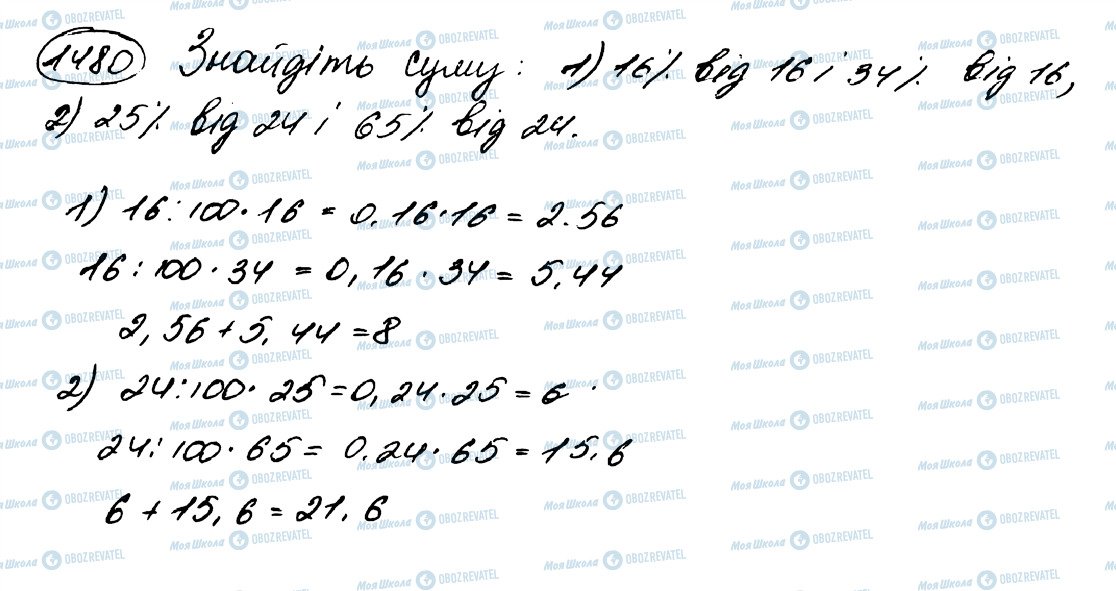 1480 Знайдіть суму: 1) 16% від 16 і 34% від 16,
2) 25% від 24 і 65% від 24.
1) 16:100·16 = 0.16·16 = 2.56
16:100·34 = 0,16·34 = 5,44
2,56+5,44=8
2) 24:100·25=0,24·25=6
24:100·65= 0.24·65=15.6
6+15,6=21.6